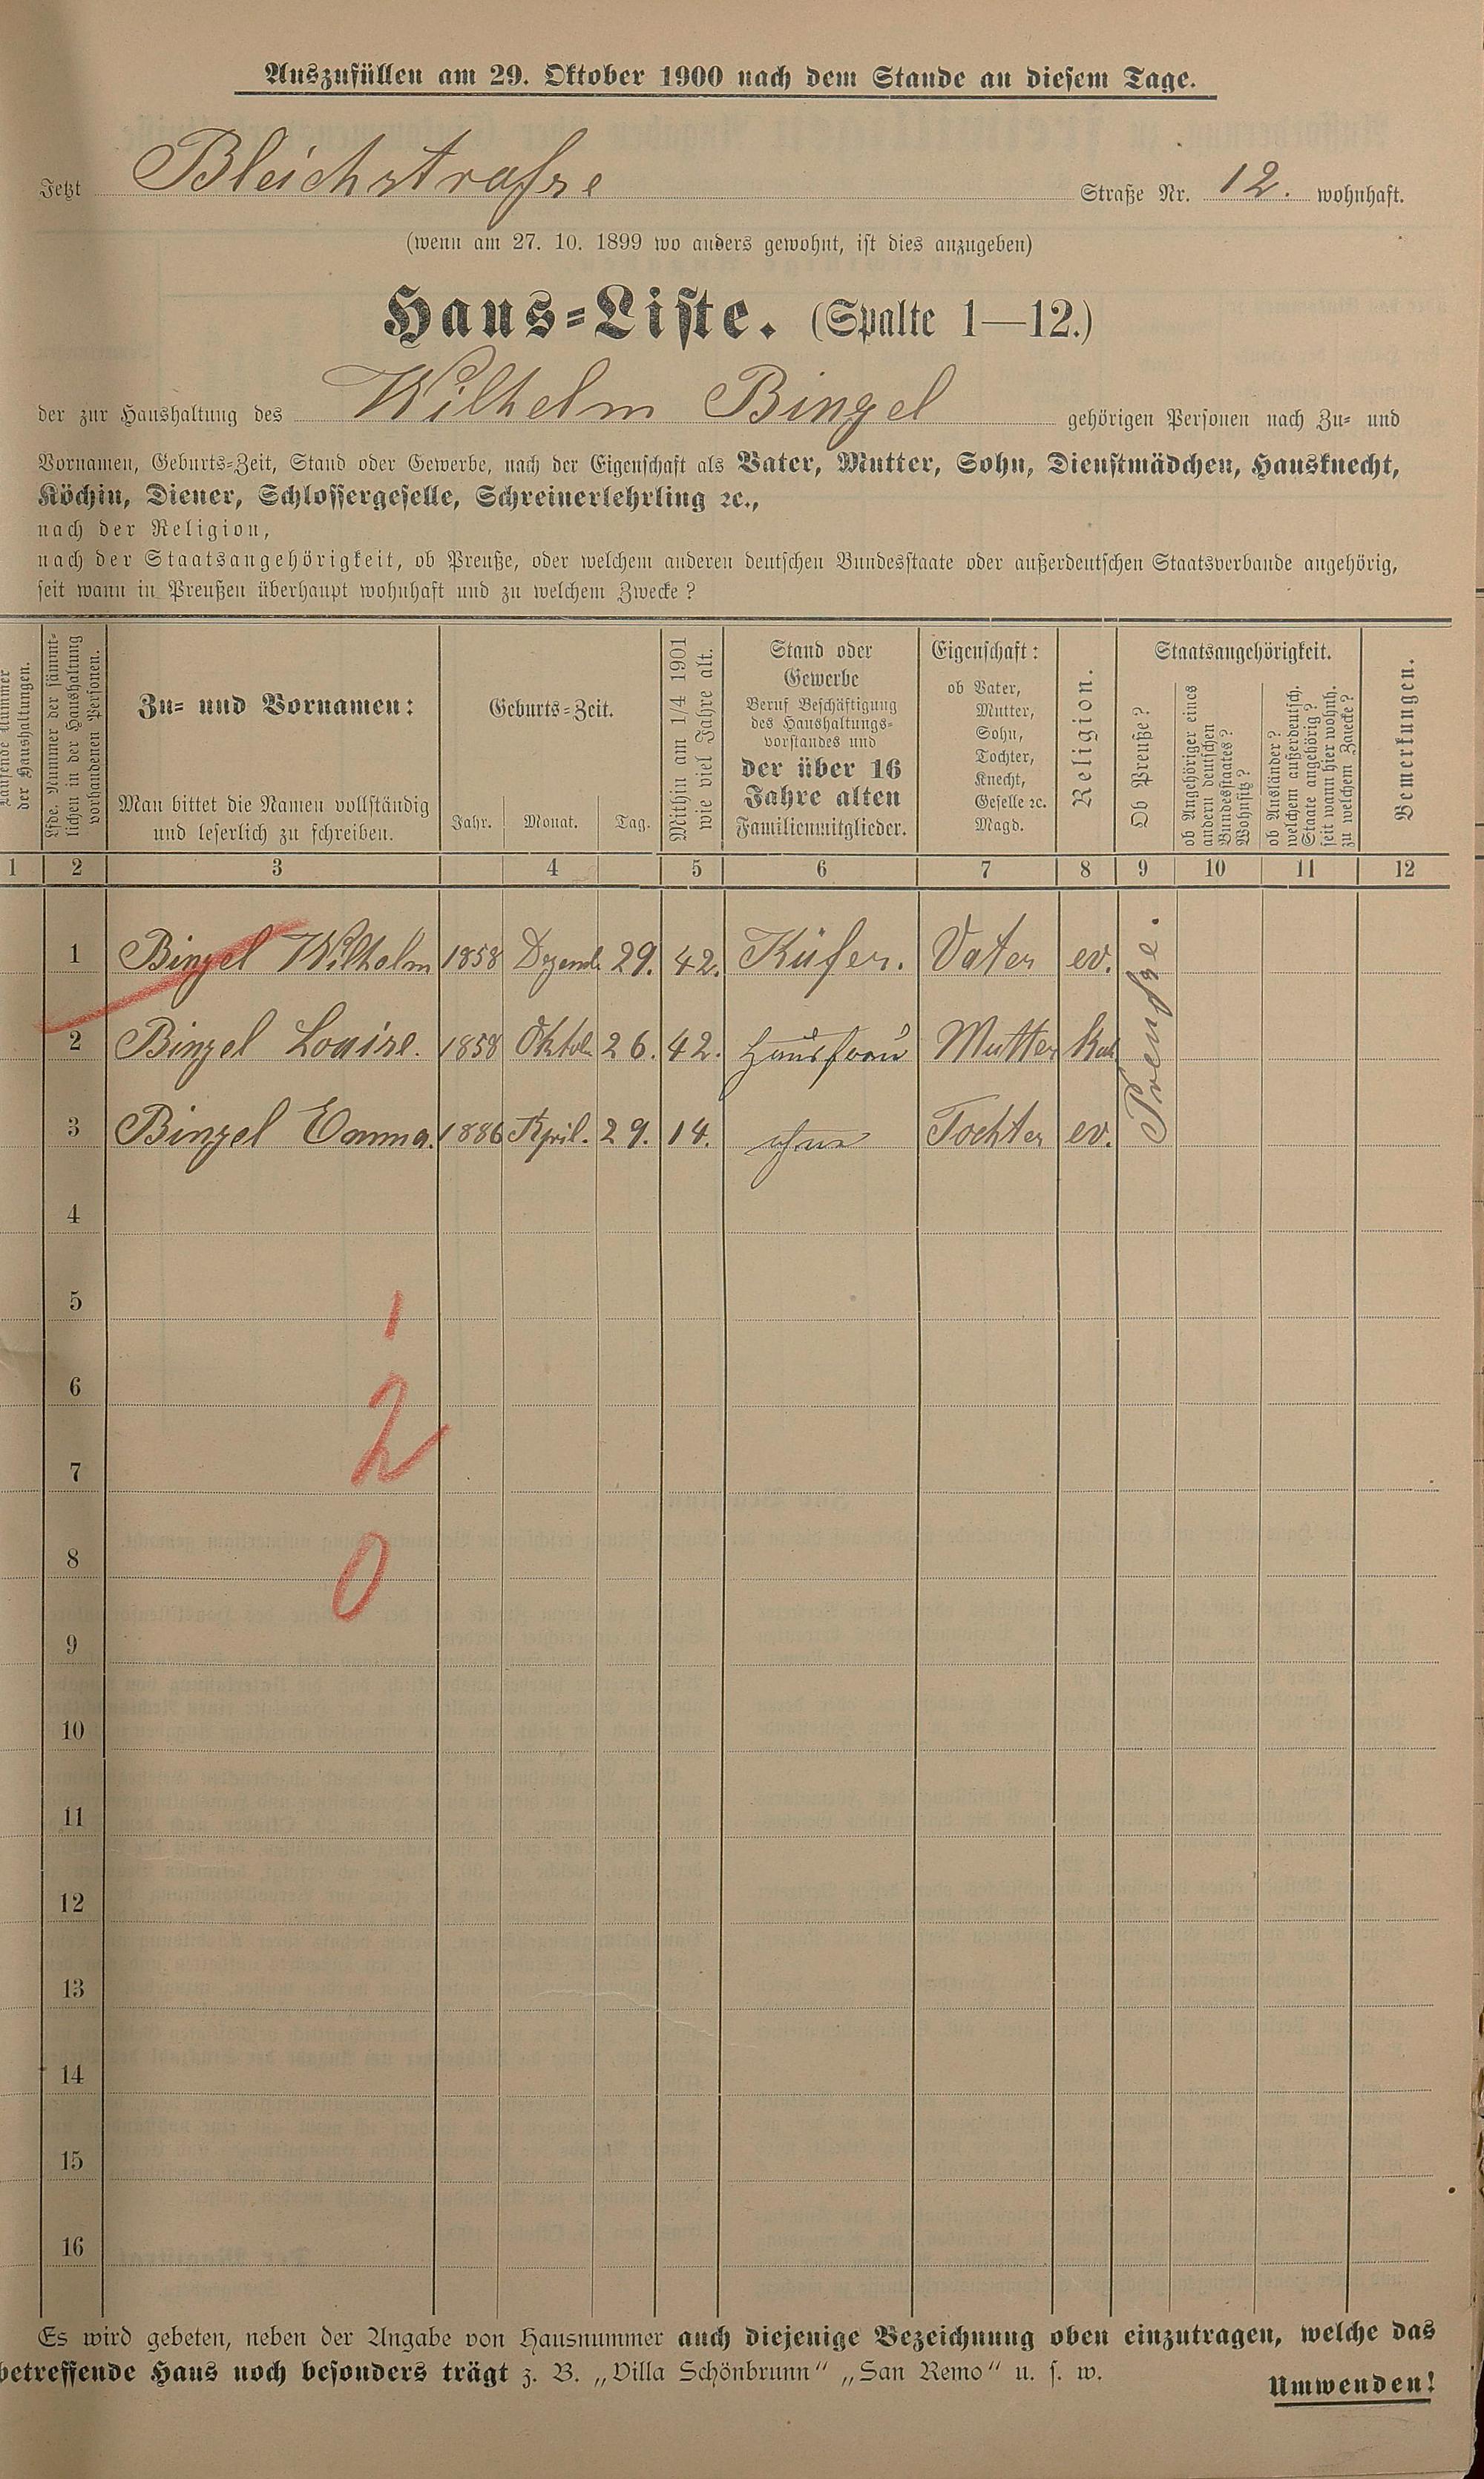 Auszufüllen am 29. Oktober 1900 nach dem Stande an diesem Tage.
Jetzt Bleichstraße Straße Nr. 12. wohnhaft.
(wenn am 27. 10. 1899 wo anders gewohnt, ist dies anzugeben)
Haus-Liste. (Spalte 1—12.)
der zur Haushaltung des Wilhelm Bingel gehörigen Personen nach Zu- und
Vornamen, Geburts-Zeit, Stand oder Gewerbe, nach der Eigenschaft als Vater, Mutter, Sohn, Dienstmädchen, Hausknecht,
Köchin, Diener, Schlossergeselle, Schreinerlehrling ꝛc.,
nach der Religion,
nach der Staatsangehörigkeit, ob Preuße, oder welchem anderen deutschen Bundesstaate oder außerdeutschen Staatsverbande angehörig,
seit wann in Preußen überhaupt wohnhaft und zu welchem Zwecke?
Laufende Nummer
der Haushaltungen.
Lfde. Nummer der sämmt-
lichen in der Haushaltung
vorhandenen Personen.
Zu- und Vornamen:
Man bittet die Namen vollständig
und leserlich zu schreiben.
Geburts-Zeit.
Jahr. Monat. Tag.
Mithin am 1/4 1901
wie viel Jahre alt.
Stand oder
Gewerbe
Beruf Beschäftigung
des Haushaltungs-
vorstandes und
der über 16
Jahre alten
Familienmitglieder.
Eigenschaft:
ob Vater,
Mutter,
Sohn,
Tochter,
Knecht,
Geselle ꝛc.
Magd.
Religion.
Staatsangehörigkeit.
Ob Preuße?
ob Angehöriger eines
andern deutschen
Bundesstaates?
Wohnsitz?
ob Ausländer?
welchem außerdeutsch.
Staate angehörig?
seit wann hier wohnh.
zu welchem Zwecke?
Bemerkungen.
1 2 3 4 5 6 7 8 9 10 11 12
1 Bingel Wilhelm 1858 Dezemb. 29. 42. Küfer. Vater ev.
2 Bingel Louise. 1858 Oktob. 26. 42. Hausfrau Mutter Kat
3 Bingel Emma. 1886 April. 29. 14. ohne Tochter ev.
Preuße.
4
5
1
6
2
7
8
0
9
10
11
12
13
14
15
16
Es wird gebeten, neben der Angabe von Hausnummer auch diejenige Bezeichnung oben einzutragen, welche das
betreffende Haus noch besonders trägt z. B. „Villa Schönbrunn“ „San Remo“ u. s. w.
Umwenden!